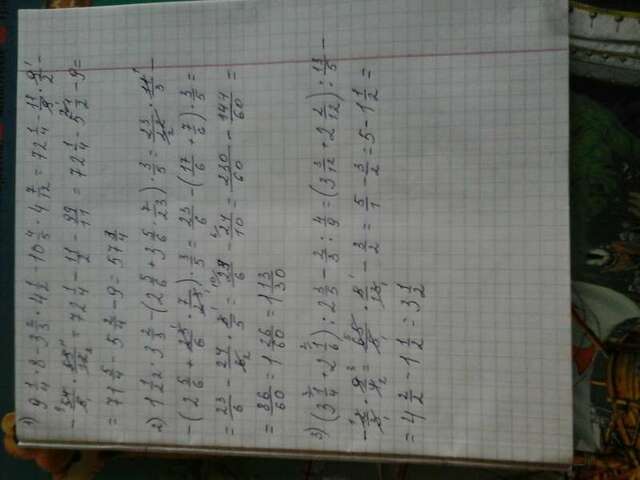 1) 9 1/4 · 8 - 3 2/3 · 4 1/2 - 10 4/5 · 4 7/12 = 72 1/4 - 11/3 · 9/2 -
- 54/5 · 55/12 = 72 1/4 - 11/2 - 99/11 = 72 1/4 - 5 1/2 - 9 =
= 71 5/4 - 5 2/4 - 9 = 57 3/4
2) 1 1/12 · 3 2/3 - (2 5/6 + 3 5/6 · 7/23) · 3/5 = 23/12 · 11/3 -
- (2 5/6 + 23/6 · 7/23) · 3/5 = 23/6 - (17/6 + 7/6) · 3/5 =
= 23/6 - 24/6 · 3/5 = 23/6 - 24/10 = 230/60 - 144/60 =
= 86/60 = 1 26/60 = 1 13/30
3) (3 1/4 + 2 1/6) : 2 3/5 - 2/3 : 4/9 = (3 3/12 + 2 2/12) : 13/5 -
- 2/3 · 9/4 = 65/12 · 5/13 - 3/2 = 5/1 - 3/2 = 5 - 1 1/2 =
= 4 2/2 - 1 1/2 = 3 1/2